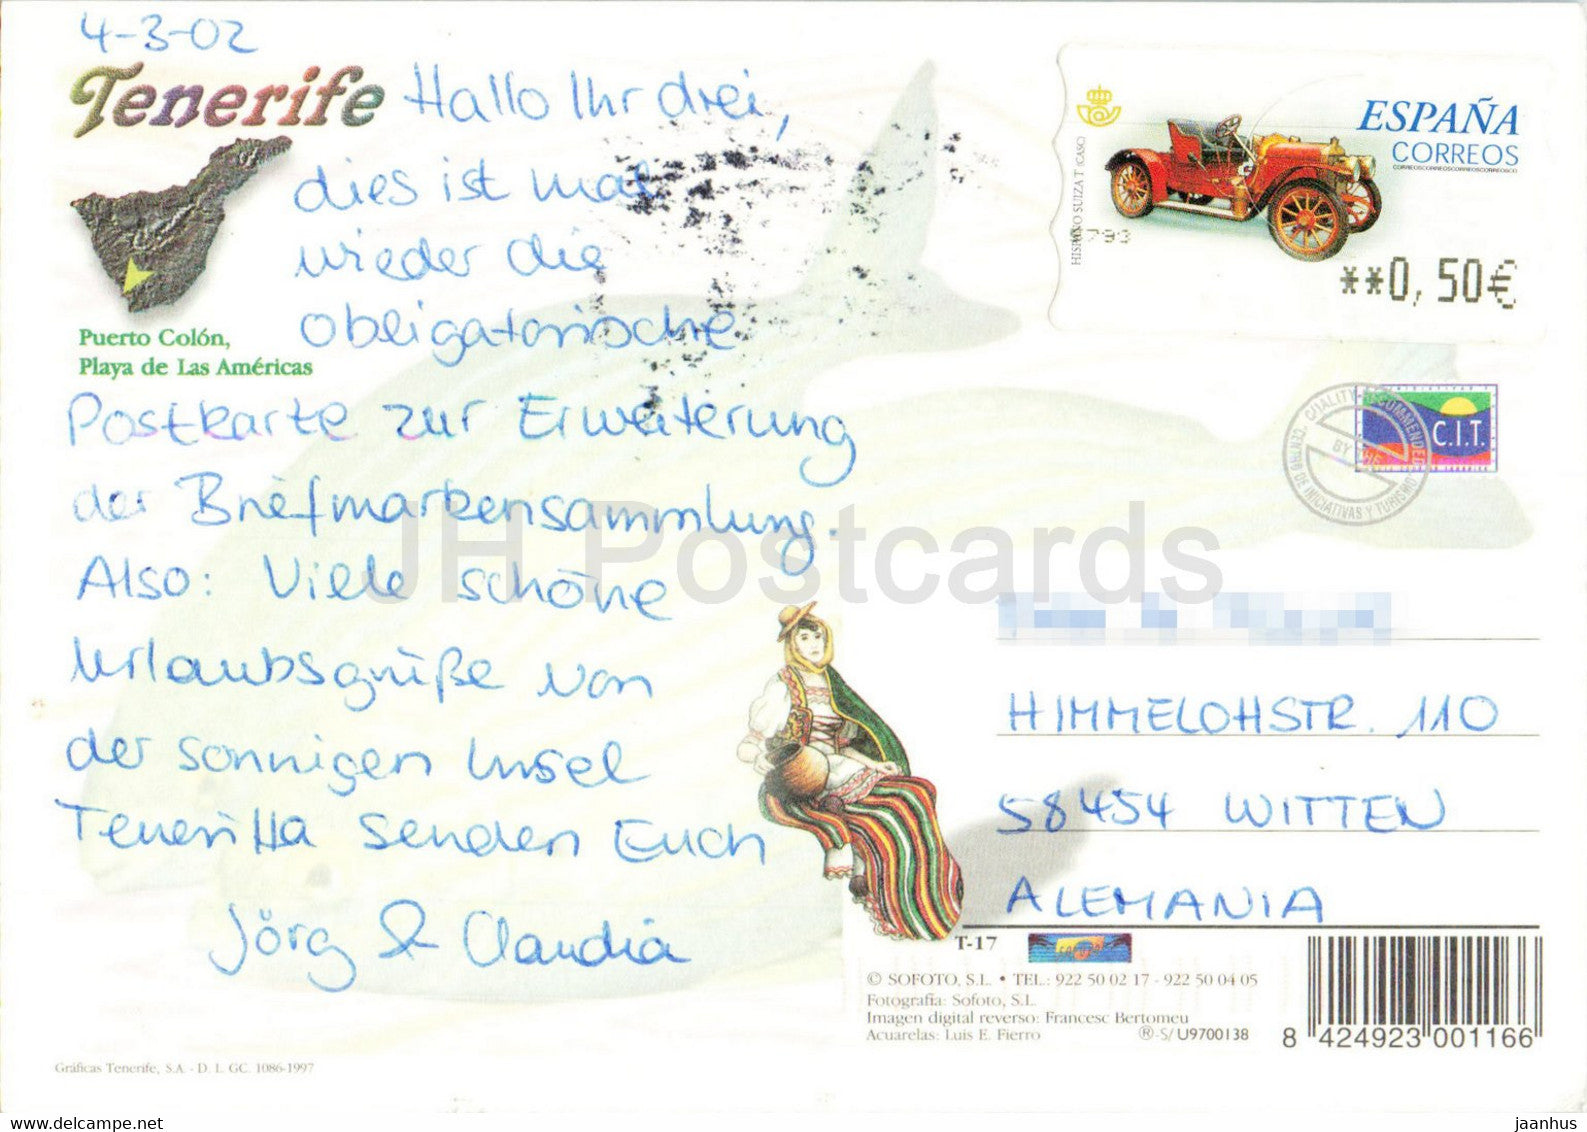 4-3-02
Tenerife
Hallo Ihr drei,
dies ist mal
wieder die
obligatorische
Puerto Colón,
Playa de Las Américas
Postkarte zur Erweiterung
der Briefmarkensammlung.
Also: Viele schöne
Urlaubsgrüße von
der sonnigen Insel
Teneriffa senden Euch
Jörg & Claudia
HISPANO SUIZA T (CASC)
ESPAÑA
CORREOS
**0,50€
QUALITY RECOMMENDED
BY THE
"CENTRO DE INICIATIVAS Y TURISMO"
C.I.T.
JH Postcards
HIMMELOHSTR. 110
58454 WITTEN
ALEMANIA
T-17
© SOFOTO, S.L. • TEL.: 922 50 02 17 - 922 50 04 05
Fotografía: Sofoto, S.L.
Imagen digital reverso: Francesc Bertomeu
Acuarelas: Luis E. Fierro
®-S/ U9700138
8 424923 001166
Gráficas Tenerife, S.A. - D. L. GC. 1086-1997
www.hippostcard.com/store/jaanhus